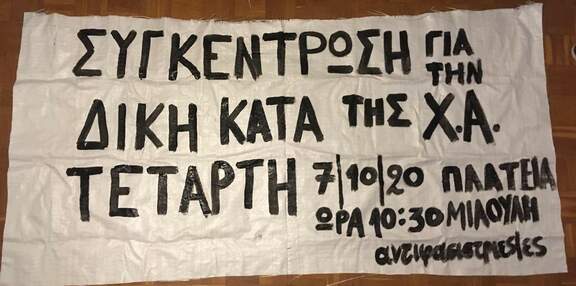 ΣΥΓΚΕΝΤΡΩΣΗ ΓΙΑ ΤΗΝ
ΔΙΚΗ ΚΑΤΑ ΤΗΣ Χ.Α.
ΤΕΤΑΡΤΗ 7/10/20 ΠΛΑΤΕΙΑ
ΩΡΑ 10:30 ΜΙΑΟΥΛΗ
αντιφασιστριες/ες